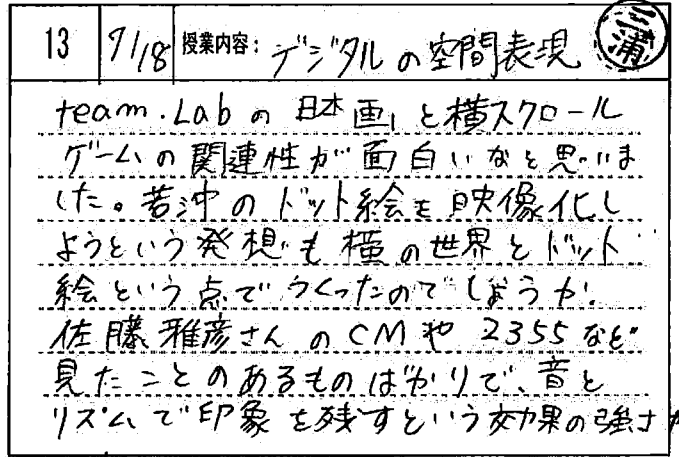 13 7/18 授業内容: デジタルの空間表現 三浦
team.Labの日本画と横スクロール
ゲームの関連性が面白いなと思いま
した。若沖のドット絵を映像化し
ようという発想も横の世界とドット
絵という点でつくったのでしょうか。
佐藤雅彦さんのCMや2355など
見たことのあるものばかりで、音と
リズムで印象を残すという効果の強さが